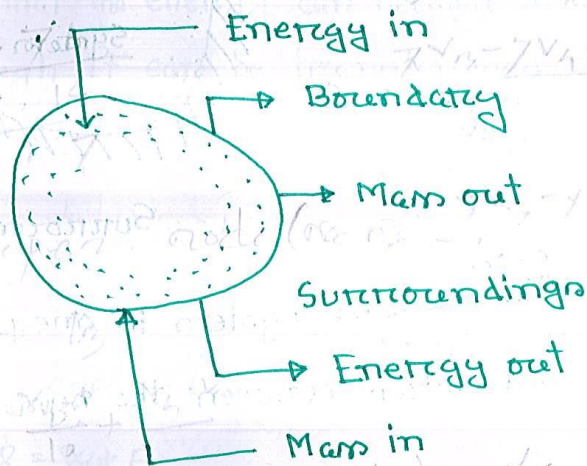 Energy in
Boundary
Mass out
Surroundings
Energy out
Mass in